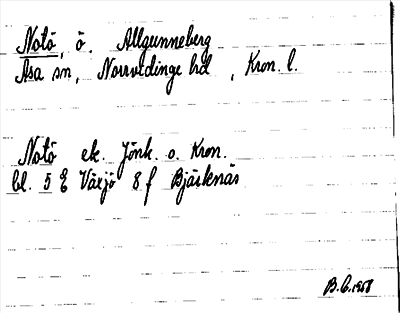 Notö, ö. Allgunneberg
Åsa sn, Norrvidinge hd, Kron. l.
Notö ek. Jönk. o. Kron.
bl. 5 E Växjö 8 f Bjärknäs
B.C. 1958